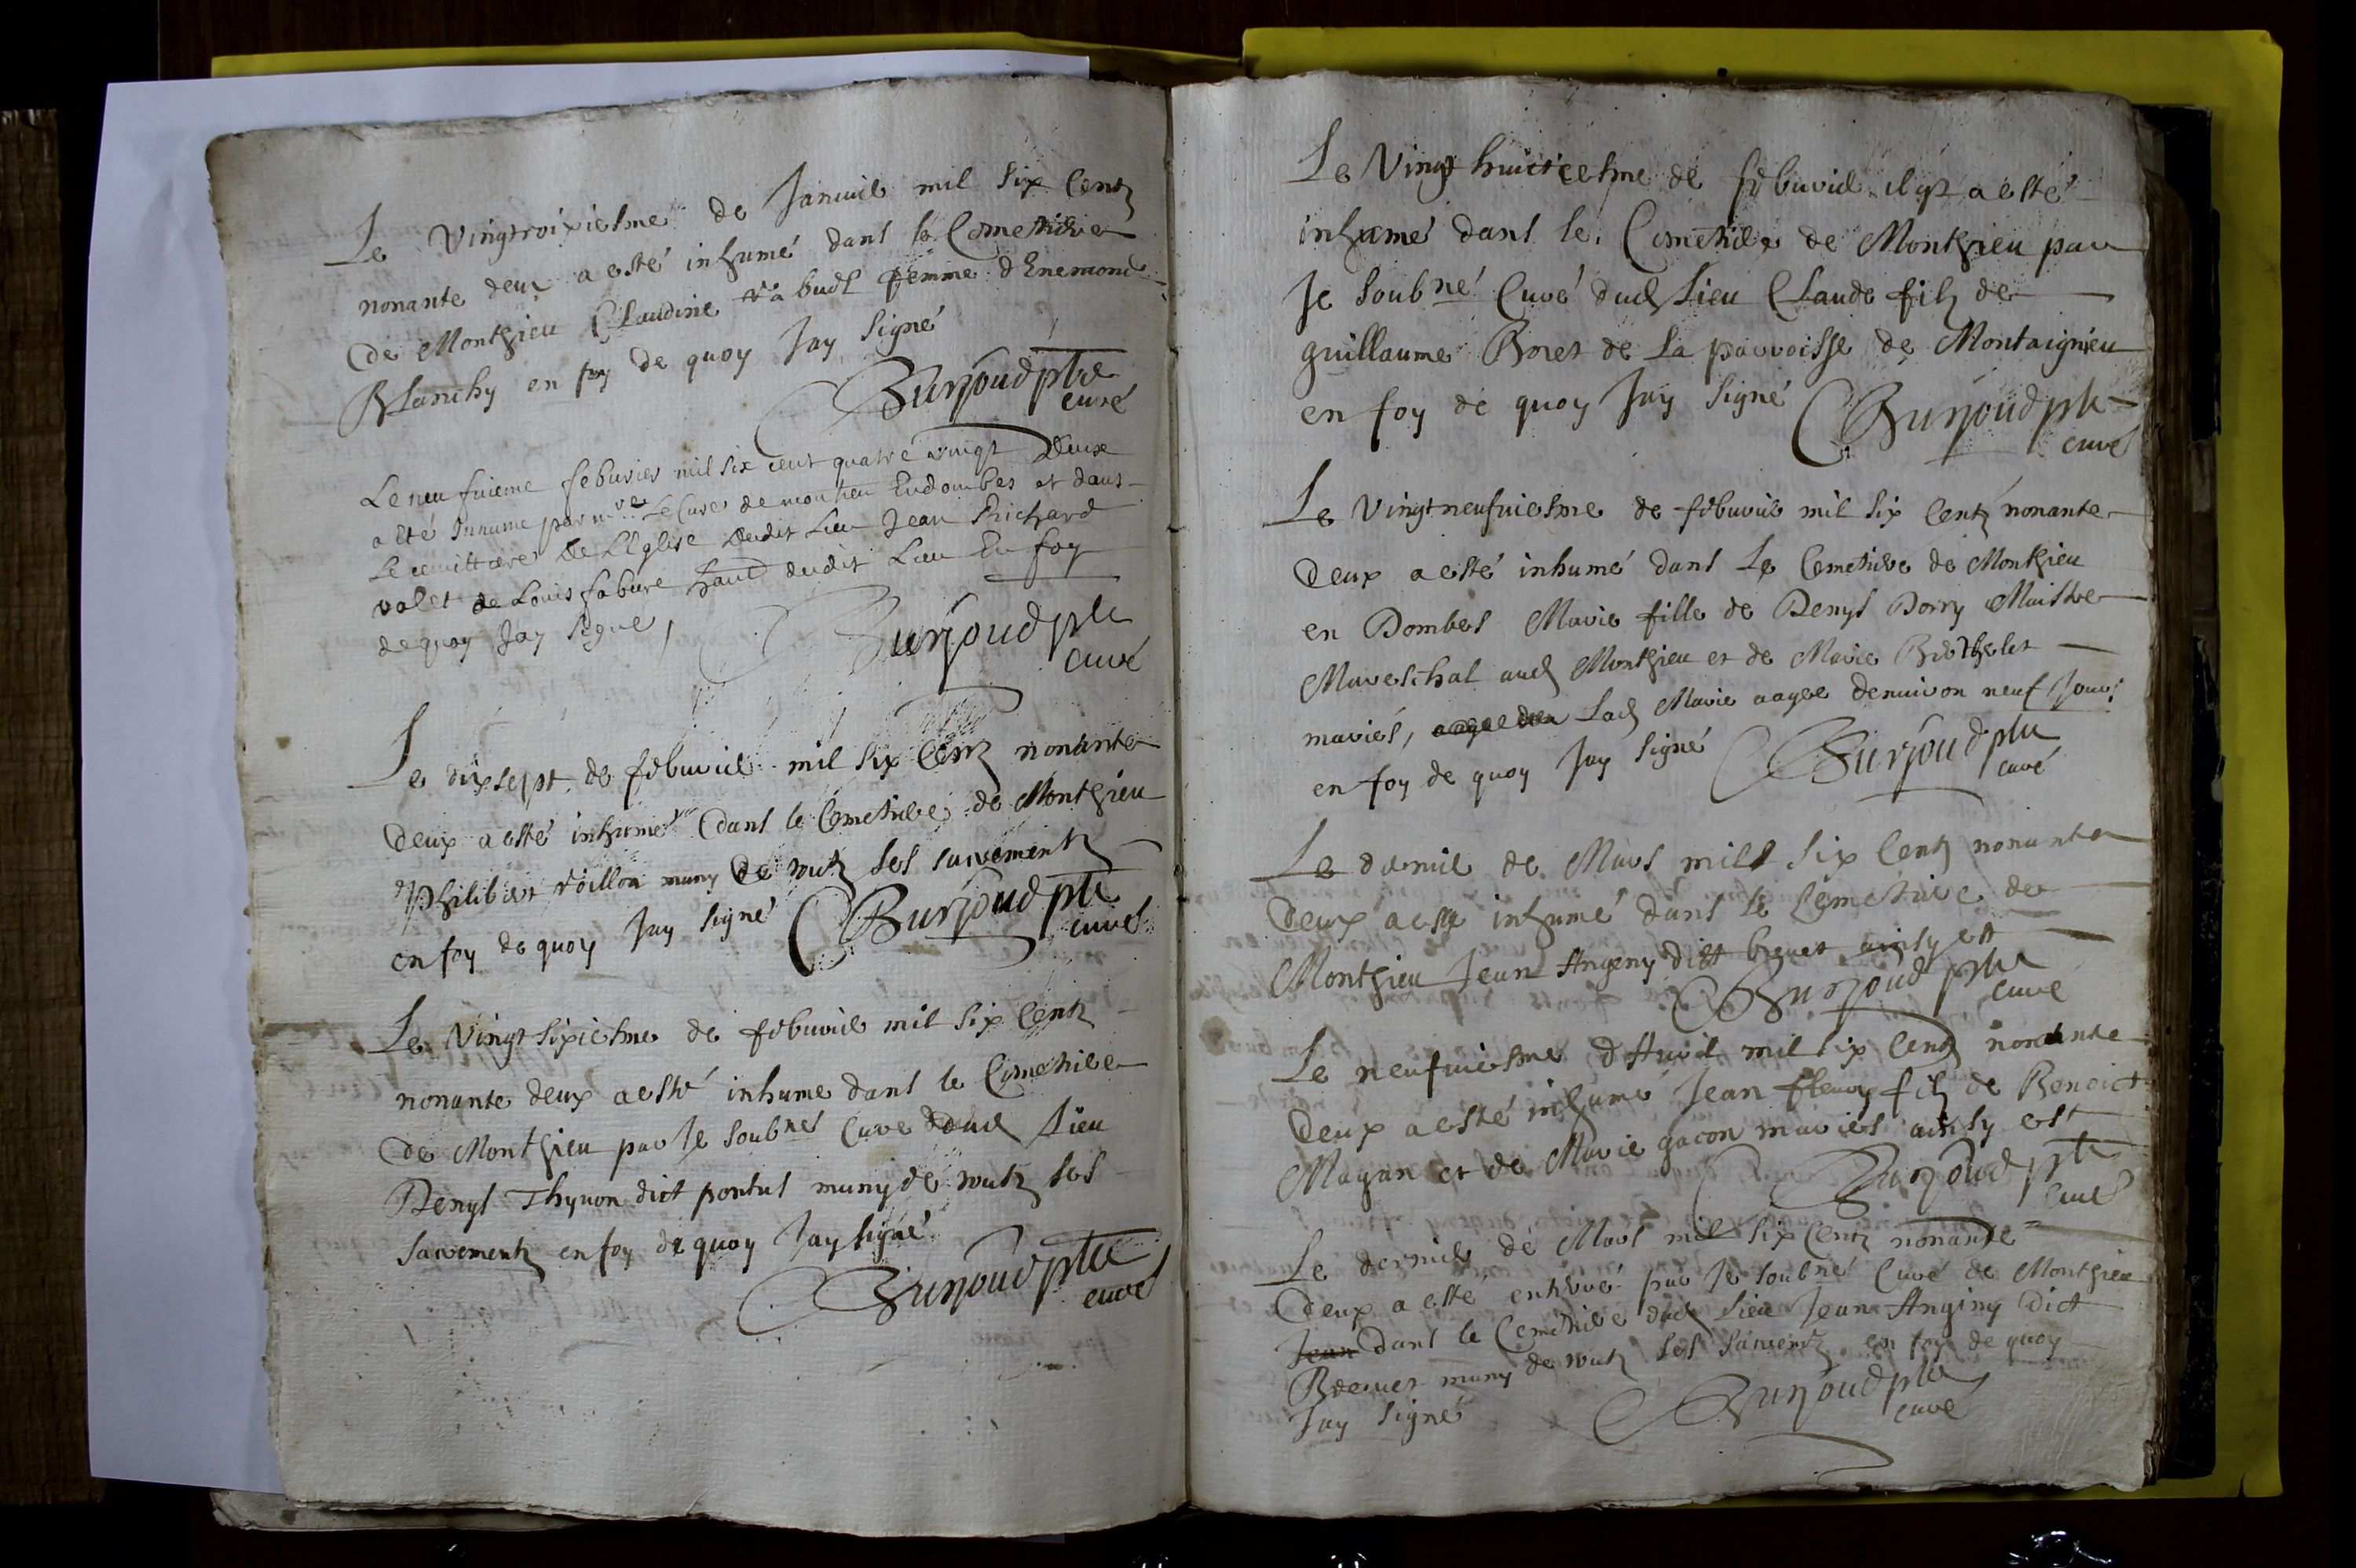 Le Vingtroixiesme de Januié mil six Centz
nonante deux a esté inhumé dans le Cemetiere
de Monthieu Claudine femme d'Enemond
Blanchy en foy de quoy Jay signé
Burjoud ptre
curé
Le neufuieme febvrier mil six cent quatre vingt Deux
a Eté Inhume par mre Le Curé de montieu Endombes et dans
Le cemittiere De L'Eglise dudit Lieu Jean Richard
valet de Louis fabvre dudit Lieu En foy
de quoy Jay signé,
Burjoud ptre
curé
Le dix sept de febvrié mil six Centz nonante
deux a esté inhumé dans le Cemetiere de Monthieu
Philibert muny de toutz ses sacrementz
en foy de quoy Jay signé Burjoud ptre
curé
Le Vingt sixiesme de febvrié mil six Centz
nonante deux a esté inhume dans le Cimetiere
de Monthieu par Je soubné Curé dud Lieu
Denys Thynon dict pontus muny de toutz ses
sacrementz en foy de quoy Jay signé
Burjoud ptre
curé
Le Vingt huictiesme de febvrié a esté
inhumé dans le Cimetiere de Monthieu par
Je soubné Curé dud Lieu Claude filz de
guillaume de La parroisse de Montaignieu
en foy de quoy Jay signé Burjoud ptre
curé
Le Vingtneufuiesme de febvrié mil six Centz nonante
deux a esté inhumé dans Le Cemetiere de Monthieu
en Dombes Marie fille de Denys Dorry Maistre
Mareschal aud Monthieu et de Marie Berthelet
mariés, Lad Marie aagee denuiron neuf Jours
en foy de quoy Jay signé Burjoud ptre
curé
Le dernié de Mars mil six Centz nonante
deux a esté inhumé dans le Cemetiere de
Monthieu Jean Angeny dict breuet ainsy est
Burjoud ptre
curé
Le neufuiesme d'Auril mil six Centz nonante
deux a esté inhumé Jean fleury filz de Benoict
Magan et de Marie gacon mariés ainsy est
Burjoud ptre
curé
Le dernier de Mars mil six Centz nonante
deux a esté enterré par Je soubné Curé de Monthieu
Jean dans le Cemetiere dud Lieu Jean Anginy dict
Breuet muny de toutz ses Sacrementz en foy de quoy
Jay signé Burjoud ptre
curé